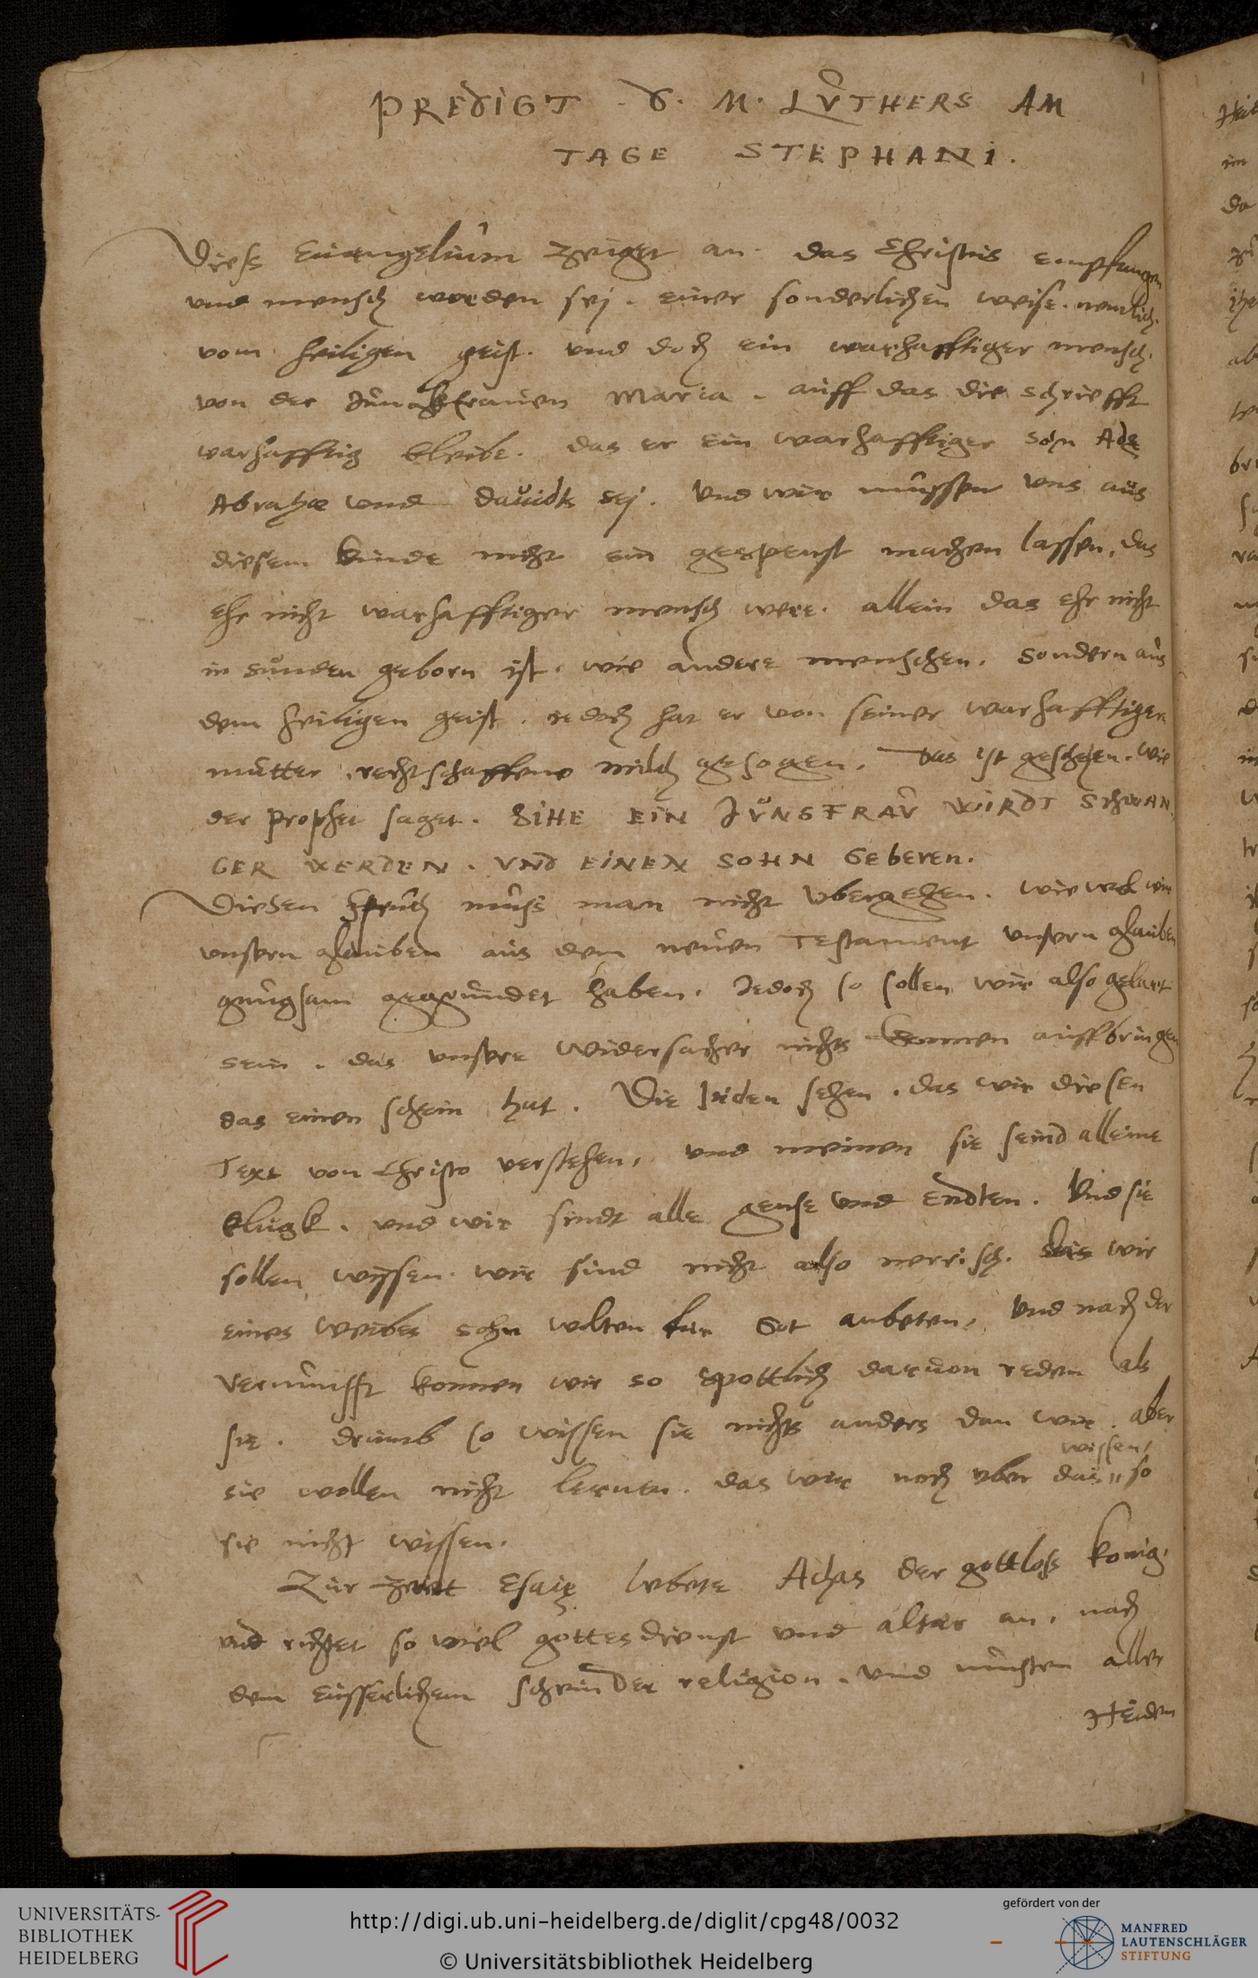 PREDIGT . D. M. LVTHERS AM
TAGE STEPHANI.
Dieß Euangelium zeiget an. das Christus empfangen
vnd mensch worden sej. einer sonderlichen weise. nemlich.
vom heiligen geist. vnd doch ein warhafftiger mensch.
von der Junckfrauen Maria. auff das die schriefft
warhafftig bleibe. das er ein warhafftiger son Ade
Abrahæ vnd dauidts sej. Vnd wir mussen vns aus
diesem kinde nicht ein gespenst machen lassen, das
ehr nicht warhafftiger mensch were. allein das ehr nicht
in sunden geborn ist. wie andere menschen. sondern aus
dem heiligen geist. jedoch hat er von seiner warhafftigen
mutter rechtschaffene milch gesogen. Das ist geschehen. wie
der prophet saget. SIHE EIN JUNGFRAU WIRDT SCHWAN
GER WERDEN. VND EINEN SOHN GEBEREN.
Diesen spruch mus man nicht vbergehen. wie wol wir
vnsern glauben aus dem neuen Testament vnsern glauben
gnugsam gegrundet haben. Jedoch so sollen wir also gelart
sein. das vnsere widersacher nichts konnen auffbringen
das einen schein hat. Die Juden sehen. das wir diesen
Text von Christo verstehen, vnd meinen sie seind alleine
klugk. vnd wir sindt alle gense vnd endten. Vnd sie
sollen wissen. wir sind nicht also nerrisch. das wir
eines weibes sohn wolten fur Got anbeten, Vnd nach der
vernunfft konnen wir so spottlich daruon reden als
sie. drumb so wissen sie nichts anders dan wir. aber
sie wollen nicht lernen. das wir noch vber das wissen, so
sie nicht wissen.
Zur zeit Esaie lebete Achas der gottloß konig.
vnd richtet so viel gottesdienst vnd altar an. nach
dem eusserlichem schein der religion. vnd musten aller
Heiden
UNIVERSITÄTS-
BIBLIOTHEK
HEIDELBERG
http://digi.ub.uni-heidelberg.de/diglit/cpg48/0032
© Universitätsbibliothek Heidelberg
gefördert von der
MANFRED
LAUTENSCHLÄGER
STIFTUNG